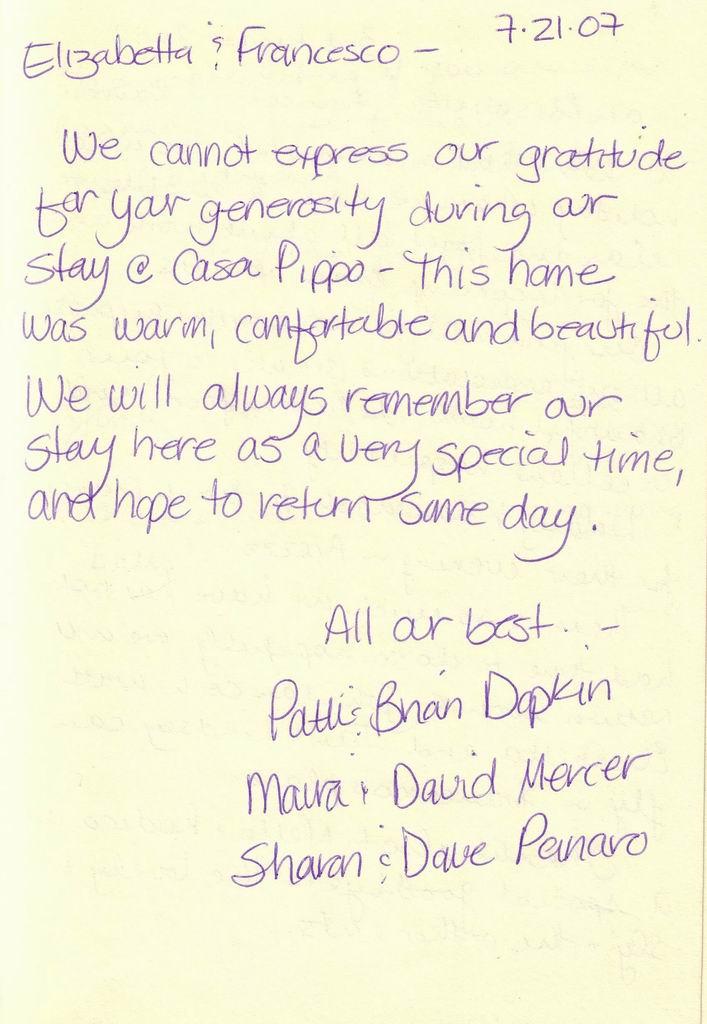 7.21.07
Elizabetta & Francesco -
We cannot express our gratitude
for your generosity during our
stay @ Casa Pippo - This home
was warm, comfortable and beautiful.
We will always remember our
stay here as a very special time,
and hope to return some day.
All our best... -
Patti & Brian Dopkin
Maura & David Mercer
Sharon & Dave Panaro